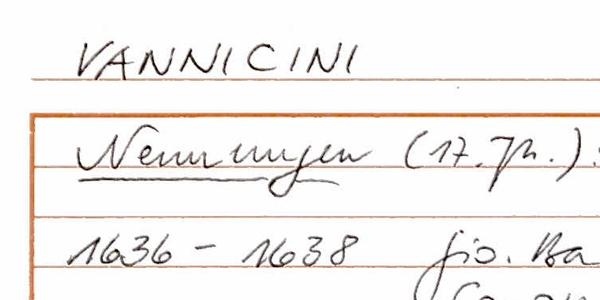 VANNICINI
Nennungen (17. Jh.):
1636 - 1638 Gio. Ba